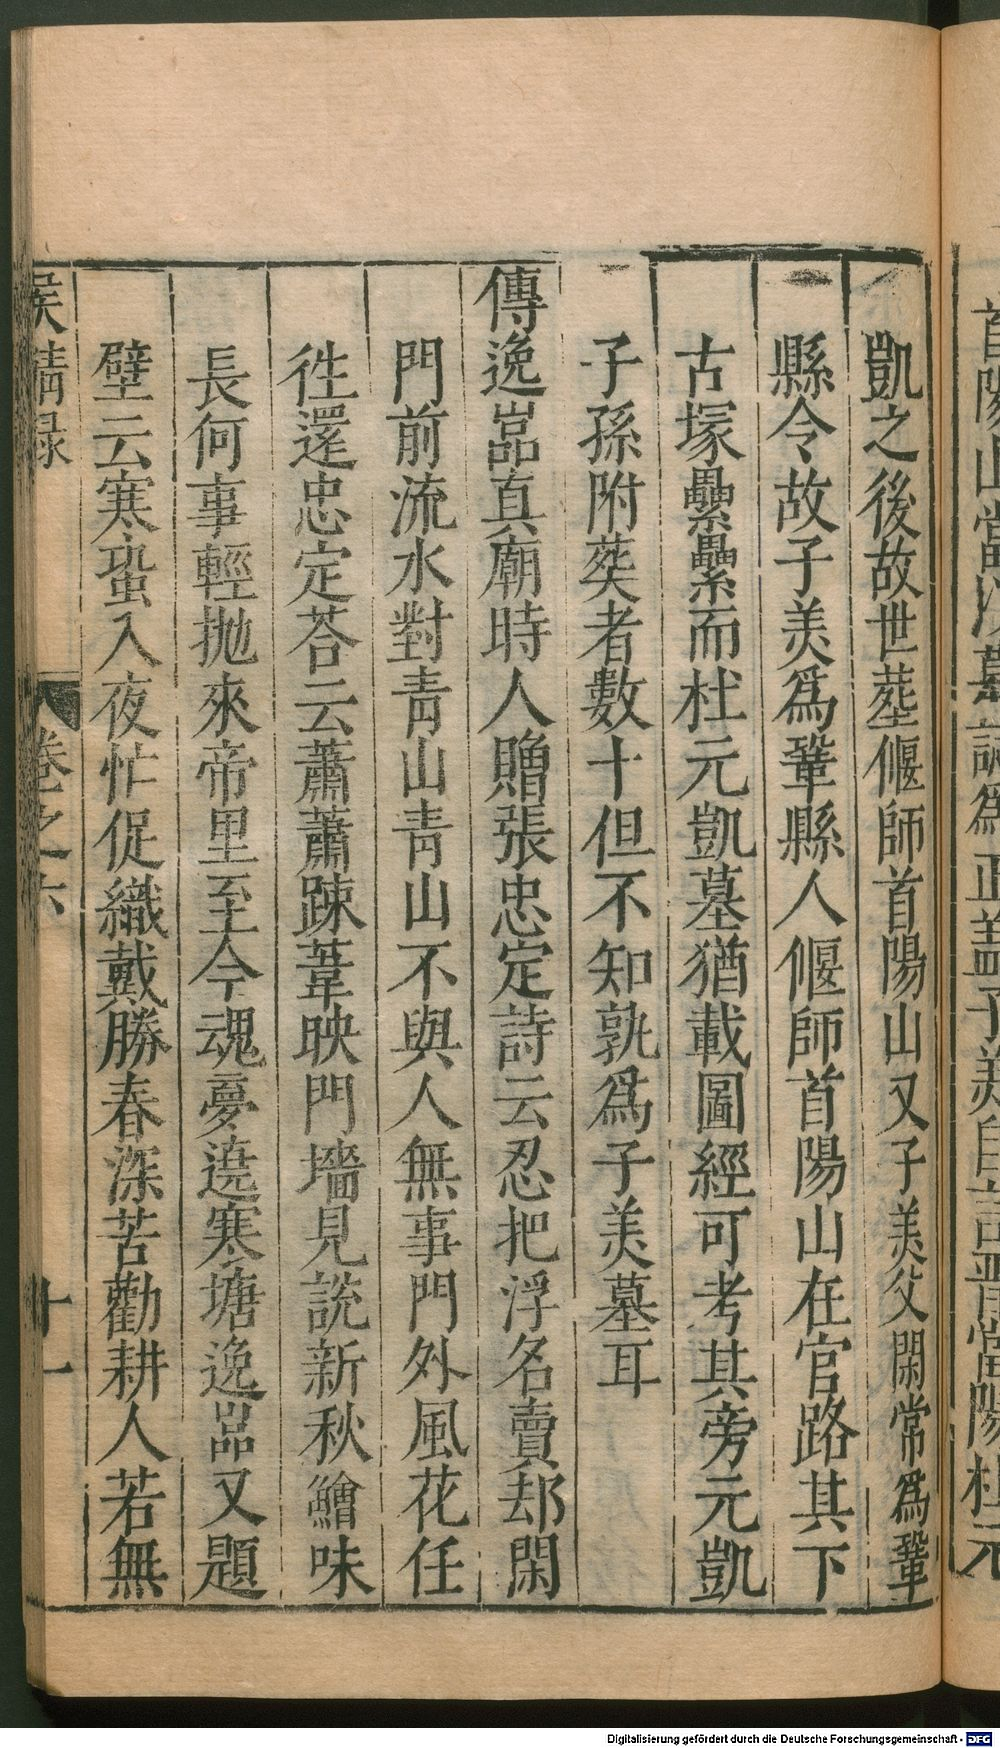 凱之後故世塟偃師首陽山又子美父閑常爲鞏
縣令故子美爲鞏縣人偃師首陽山在官路其下
古塚纍纍而杜元凱墓猶載圖經可考其旁元凱
子孫附葵者數十但不知孰爲子美墓耳
傳逸嵓真廟時人贈張忠定詩云忍把浮名賣却閑
門前流水對青山青山不與人無事門外風花任
徃還忠定荅云蕭蕭踈葦映門墻見說新秋鱠味
長何事輕抛來帝里至今魂夢遶寒塘逸嵓又題
壁云寒蛩入夜忙促織戴勝春深苦勸耕人若無
侯鯖録
卷之六
十一
Digitalisierung gefördert durch die Deutsche Forschungsgemeinschaft - DFG